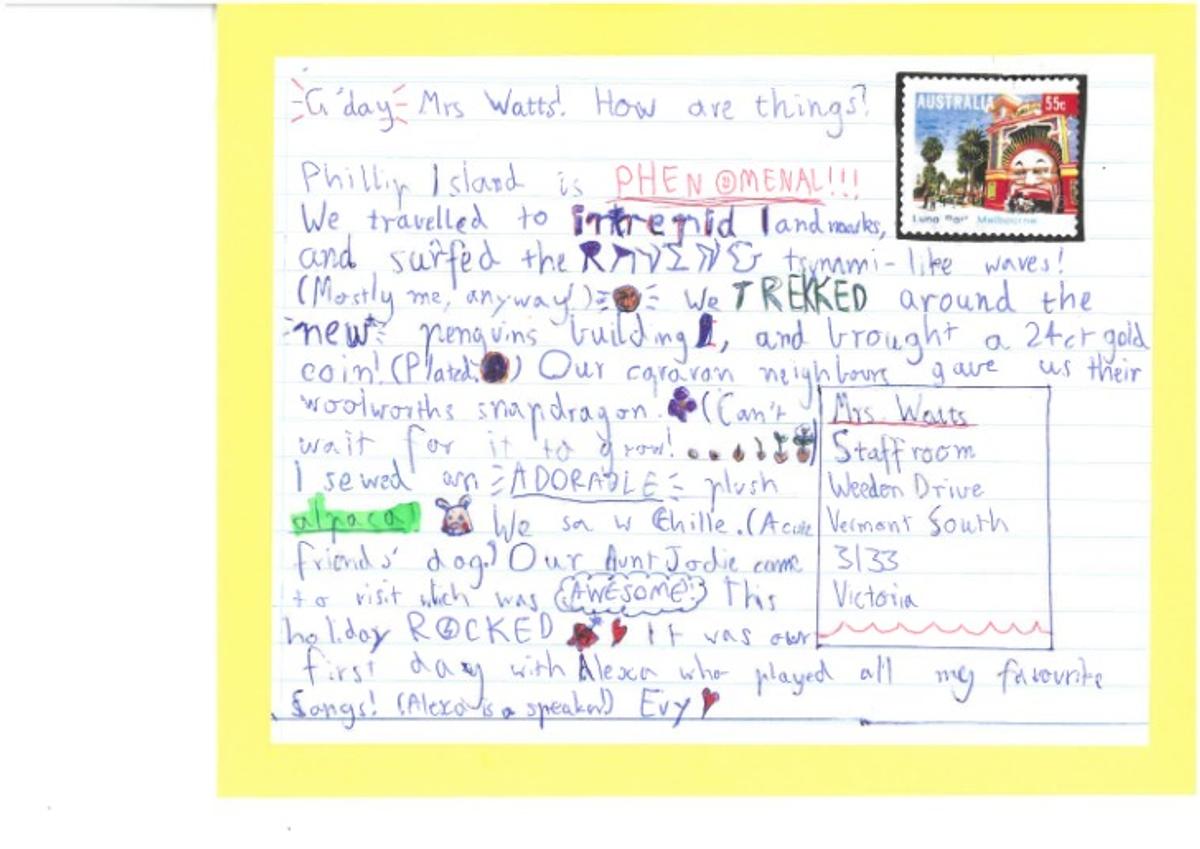 G'day Mrs Watts! How are things?
AUSTRALIA 55c
Luna Park Melbourne
Phillip Island is PHENOMENAL!!!
We travelled to intrepid landmarks,
and surfed the RAVING tsunami-like waves!
(Mostly me, anyway!) We TREKKED around the
new penguins building, and brought a 24ct gold
coin! (Plated.) Our caravan neighbours gave us their
woolworths snapdragon. (Can't
wait for it to grow!)
I sewed an ADORABLE plush
alpaca! We saw Chille. (A cute
friends' dog!) Our Aunt Jodie came
to visit which was AWESOME! This
holiday ROCKED It was our
first day with Alexa who played all my favourite
songs! (Alexa is a speaker!) Evy
Mrs. Watts
Staffroom
Weeden Drive
Vermont South
3133
Victoria